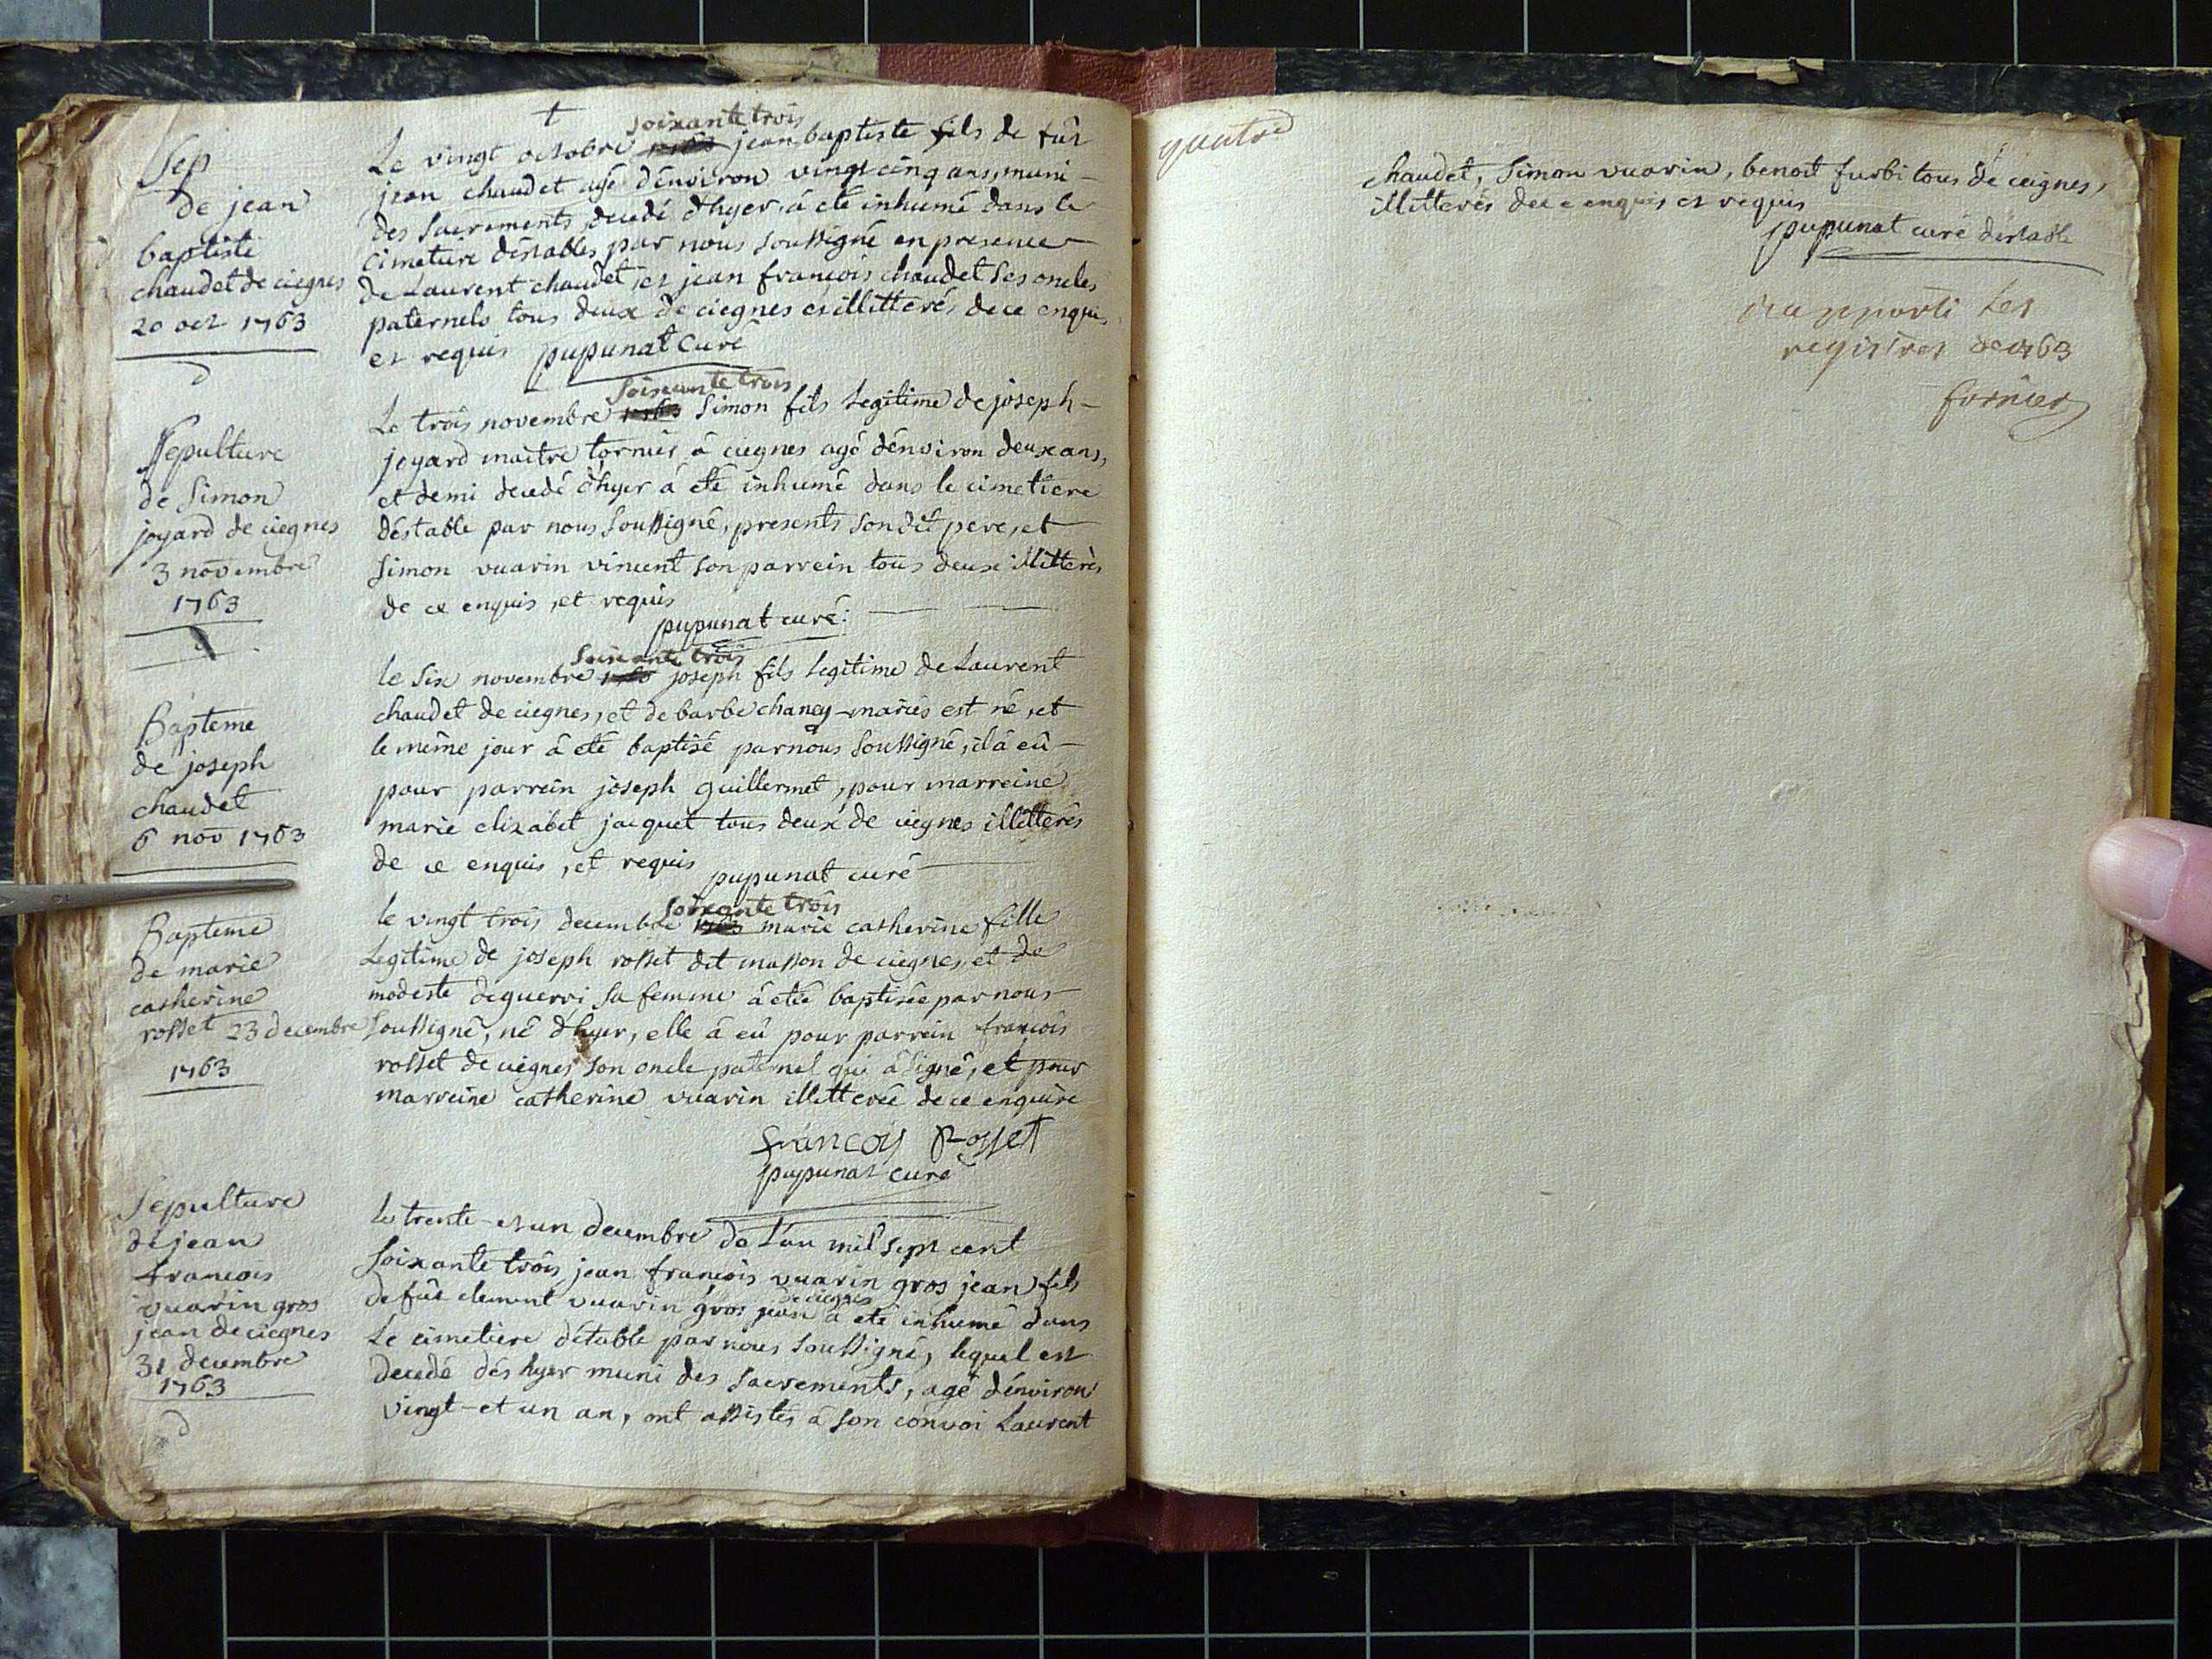 †
Sep
de jean
baptiste
chaudet de ciegnes
20 oct 1763
soixante trois
Le vingt octobre 1763 jean baptiste fils de fût
jean chaudet agé dénviron vingt cinq ans, muni
des Sacrements, decedé d'hyer, à eté inhumé dans le
cimetiere déstables, par nous soussigné en presence
de Laurent chaudet, et jean francois chaudet ses oncles
paternels tous deux de ciegnes et illitterés de ce enquis,
et requis pupunat Curé
Sepulture
de Simon
joyard de ciegnes
3 novembre
1763
soixante trois
Le trois novembre 1763 Simon fils Legitime de joseph
joyard maitre tornier à ciegnes agé dénviron deux ans,
et demi decedé d'hyer à eté inhumé dans le cimetiere
déstable par nous soussigné, presents son dit pere, et
Simon vuarin vincent son parrein tous deux illitterés
de ce enquis, et requis
pupunat curé
Bapteme
de joseph
chaudet
6 nov 1763
Soixante trois
le Six novembre joseph fils legitime de Laurent
chaudet de ciegnes, et de barbe chaney mariés est né, et
le même jour â eté baptisé par nous soussigné, il â eû
pour parrein joseph guillermet, pour marreine
marie elizabet jacquet tous deux de ciegnes illitterés
de ce enquis, et requis pupunat curé
Bapteme
de marie
catherine
rosset 23 decembre
1763
soixante trois
le vingt trois decembre 1763 marie catherine fille
Legitime de joseph rosset dit masson de ciegnes, et de
modeste deguerri sa femme â etée baptisée par nous
soussigné, né d'hyer, elle â eû pour parrein francois
rosset de ciegnes son oncle paternel qui â signé, et pour
marreine catherine vuarin illitterée de ce enquise
francois Rosset
pupunat curé
Sepulture
de jean
francois
vuarin gros
jean de ciegnes
31 decembre
1763
le trente et un decembre de L'an mil sept cent
soixante trois jean francois vuarin gros jean fils
de ciegnes
de fût clement vuarin gros jean â eté inhumé dans
Le cimetiere déstable par nous soussigné, lequel est
decedé dés hyer muni des sacrements, agé dénviron
vingt et un an, ont assistés â son convoi Laurent
quatre
chaudet, Simon vuarin, benoit furbi tous de ciegnes,
illitterés de ce enquis et requis
pupunat curé déstable
rapporté Les
registres de 1763
fornier